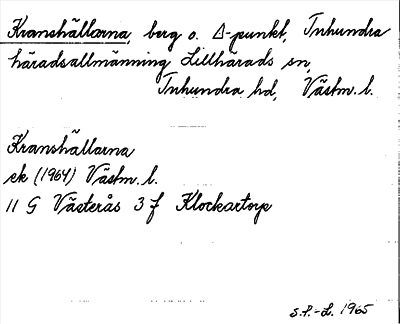 Kranshällarna, berg o. Δ-punkt, Tuhundra
häradsallmänning Lillhärads sn,
Tuhundra hd, Västm. l.
Kranshällarna
ek (1964) Västm. l.
11 G Västerås 3 f Klockartorp
S.P.-L. 1965